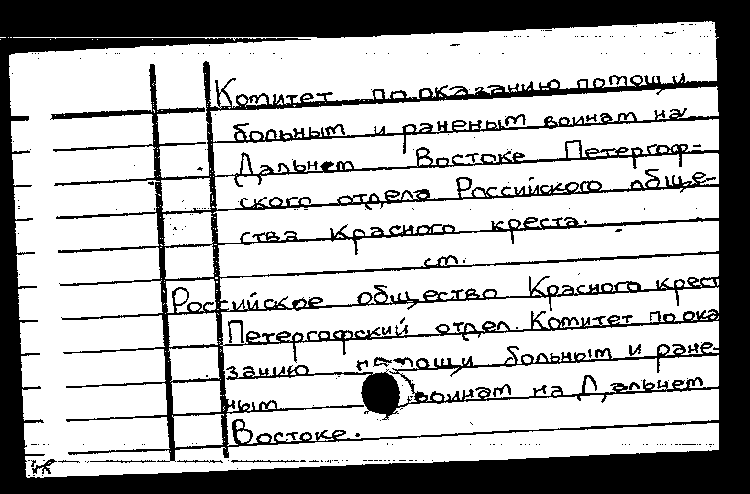 Комитет по оказанию помощи
больным и раненым воинам на
Дальнем Востоке Петергоф-
ского отдела Российского обще-
ства Красного креста.
см.
Российское общество Красного крест
Петергофский отдел. Комитет по ока
занию помощи больным и ране-
ным воинам на Дальнем
Востоке.